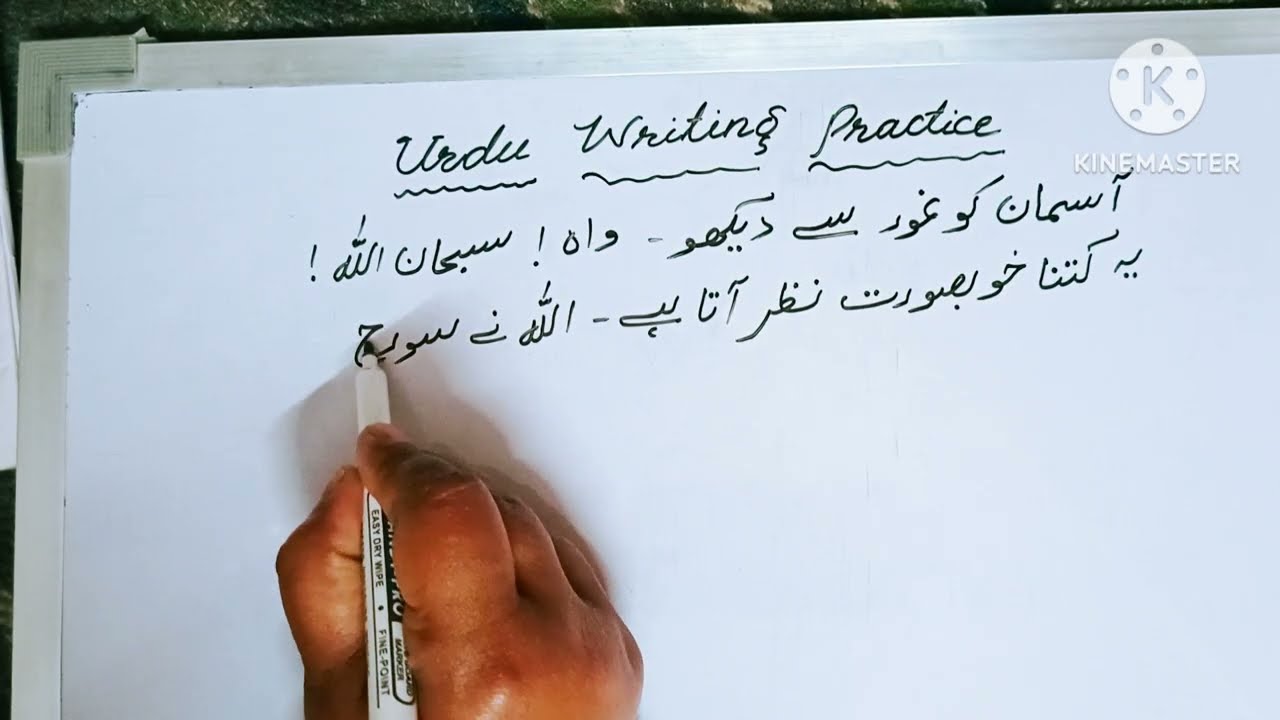 Urdu Writing Practice
آسمان کو غور سے دیکھو۔ واہ! سبحان اللہ!
یہ کتنا خوبصورت نظر آتا ہے۔ اللہ نے سورج
KINEMASTER
EASY DRY WIPE • FINE-POINT
MARKER